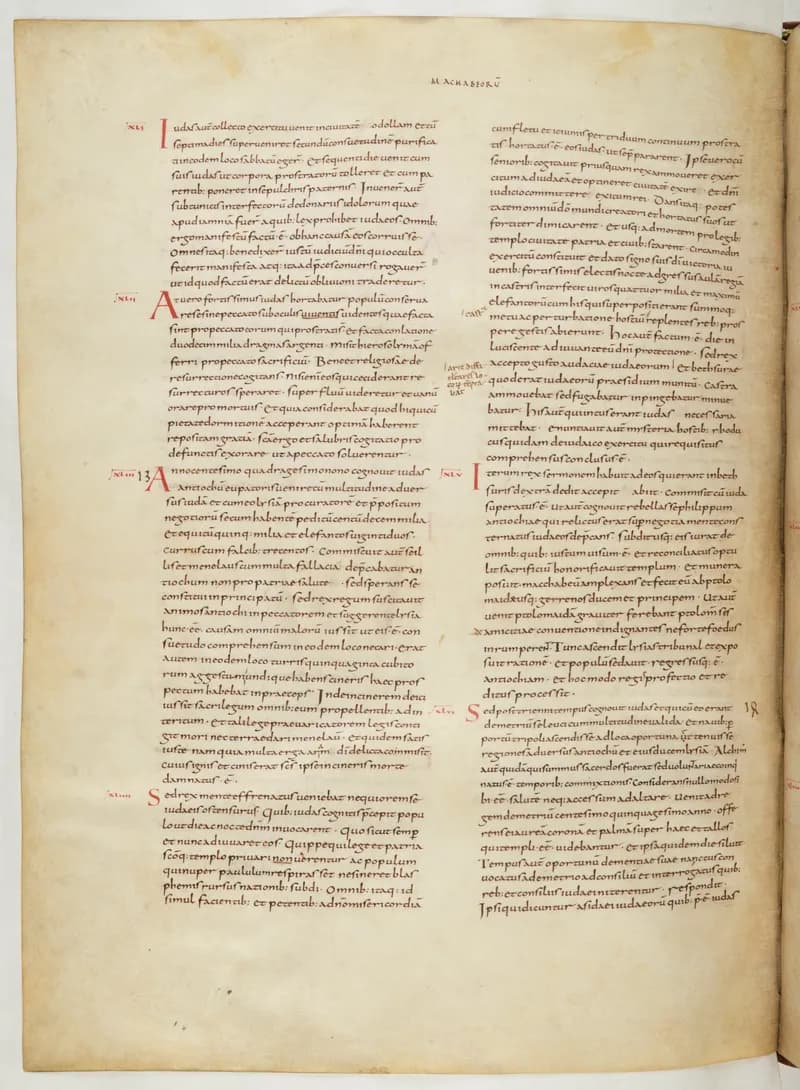 MACHABEORŪ
XLI
Iudas aut̄ collecto exercitu uenit in ciuitatē odollam et cū
septima dies superueniret secundū consuetudinē purifica
ti in eodem loco sabbatū eger̄ · Et sequenti die uenit cum
suis iudas ut corpora prostratorū tolleret et cum pa
rentib: poneret in sepulchris paternis · Inuener̄ aut̄
sub tunicis interfectorū de donariis idolorum quae
apud iamniā fuer̄ a quib: lex prohibet iudaeos Omnib:
ergo manifestū factū · ē · ob hanc causā eos corruisse ·
Omnes itaq: benedixer̄ iustū iudiciū dn̄i qui occulta
fecerit manifesta atq: ita ad p̄ces conuersi rogauer̄
ut id quod factū erat delictū obliuioni traderetur ·
XLII
At uero fortissimus iudas hortabatur populū conserua
re se sine peccato sub oculis uidentes quae facta
sint pro peccatis eorum qui prostrati s̄ et facta conlatione
duodecim milia dragmas argenti · misit hierosolymā of
ferri pro peccato sacrificiū · Bene et religiosae de
resurrectione cogitans Nisi enī eos qui ceciderant re
surrecturos speraret · super fluū uideretur et uanū
orare pro mortuis · Et quia considerabat quod hi qui cū
pietate dormitionē acceperant optimā haberent
repositam gratiā · sc̄a ergo et salubris cogitatio pro
defunctis exorare ut a peccato soluerentur ·
XLIII 13
Anno centesimo quadragesimo nono cognouit iudas
antiochū eupatorē uenire cū multitudine aduer
sus iudā et cum eo lysiā procuratorē et p̄positum
negotiorū secum habentē peditū centū decem milia
Et equitū quinq: milia et elefantos uiginti duos ·
currus cum falcib: trecentos · Commiscuit aut̄ se il
lis et menolaus cum multa fallacia dep̄cabatur an
tiochum non pro patriae salute · sed sperans se
constitui in principatū · sed rex regum suscitauit
animos antiochi in peccatorem et suggerente lysia
hunc · ēē · causam omniū malorū iussit ut eis · ē · con
suetudo comprehensum in eodem loco necari · Erat
autem in eodem loco turris quinquaginta cubito
rum aggestū undique habens cineris haec pros
pectum habebat in praeceps · Inde in cinerem deici
iussit sacrilegum omnib: eum propellentib: ad in
teritum · Et tali lege praeuaricatorem legis conti
git mori nec terrae dari menelaū · Et quidem satis
iuste nam quia multa erga arā dī delicta commisit ·
cuius ignis et cinis erat sc̄s ipse in cineris morte
damnatus · ē ·
XLIIII
Sed rex mente effrenatus ueniebat nequiorem se
iudaeis ostensurus · Quib: iudas cognitis p̄cepit popu
lo ut die ac nocte dn̄m inuocarent · Quo sicut semp̄
et nunc adiuuaret eos · Quippe qui lege et patria
sc̄oq: templo priuari non uererentur ac populum
qui nuper paululum respirasset ne sineret blas
phemis rursus nationib: subdi · Omnib: itaq: id
simul facientib: et petentib: a dn̄o misericordiā
cum fletu et ieiuniis per triduum continuum prostra
tis hortatus · ē · eos iudas ut se p̄pararent · Ipse uero cū
seniorib: cogitauit priusquam rex ammoueret exer
citum ad iudaeā et optineret ciuitatē exire · Et dn̄i
iudicio committere exitum rei Dans itaq: potes
tatem omniū dō mundi creatori et hortatus suos ut
fortiter dimicarent · Et usq: ad mortem pro legib:
templo ciuitate patria et ciuib: starent · Circa modin
exercitū constituit et dato signo suis dī uictoria iu
uenib: fortissimis electis nocte adgressus aulā regiā
in castris interfecit uiros quattuor milia et maximū
elefantorū cum his qui superpositi erant summoq:
metu ac perturbatione hostiū replentes reb: pros
pere gestis abierunt · Hoc aut̄ factum · ē · die in
lucescente adiuuante eū dn̄i protectione · sed rex
accepto gusto audaciae iudaeorum · Et bethsurae
quod erat iudaeorū praesidium munitū · Castra
ammouebat sed fugabatur inpingebatur minue
batur · His aut̄ qui intus erant iudas necessaria
mittebat · Enuntiauit aut̄ mysteria hostib: rhodo
cus quidam de iudaico exercitu qui requisitus
comprehensus conclusus · ē ·
XLV
Iterum rex sermonem habuit ad eos qui erant in beth
suris dextrā dedit accepit abiit · Commisit cū iuda
superatus · ē · Ut aut̄ cognouit rebellasse philippum
antiochiae qui relictus erat sup̄ negotia mente cons
ternatus iudaeos dep̄cans subditusq: eis iurat de
omnib: quib: iustum uisum · ē · Et reconciliatus optu
lit sacrificiū honorificauit templum · Et munera
posuit · macchabeū amplexans et fecit eū ab ptolo
maide usq: gerrenos ducem et principem · Ut aut̄
uenit ptolomaidā grauiter ferebant ptolom̄ses
amicitiae conuentione indignantes ne forte foedus
inrumperent Tunc ascendit lysias tribunal et expo
suit rationē · Et populū sedauit · regressusq: · ē ·
antiochiam · Et hoc modo regis profectio et re
ditus processit ·
XLVI 14
Sed post triennii tempus cognouit iudas et qui cū eo erant
demetriū seleuci cum multitudine ualida · Et nauib: p̄
portū tripolis ascendisse ad loca oportuna · Et tenuisse
regiones aduersus antiochū et eius ducē lysiā · Alchim
aut̄ quidā qui summus sacerdos fuerat sed uoluntarie coinq
natus · ē · temporib: commixtionis Considerans nullo modo si
bi · ēē · salutē neq: accessum ad altare · Uenit ad re
gem demetriū centesimo quinquagesimo anno · offe
rens ei aureā coronā et palmā super haec et tallos
qui templi · ēē · uidebantur · Et ipsā quidem die siluit
Tempus aut̄ oportunū dementiae suae nanctus con
uocatus a demetrio ad consiliū et interrogatus quib:
reb: et consiliis iudaei niterentur · respondit ·
Ipsi qui dicuntur asidaei iudaeorū quib: p̄ē iudas